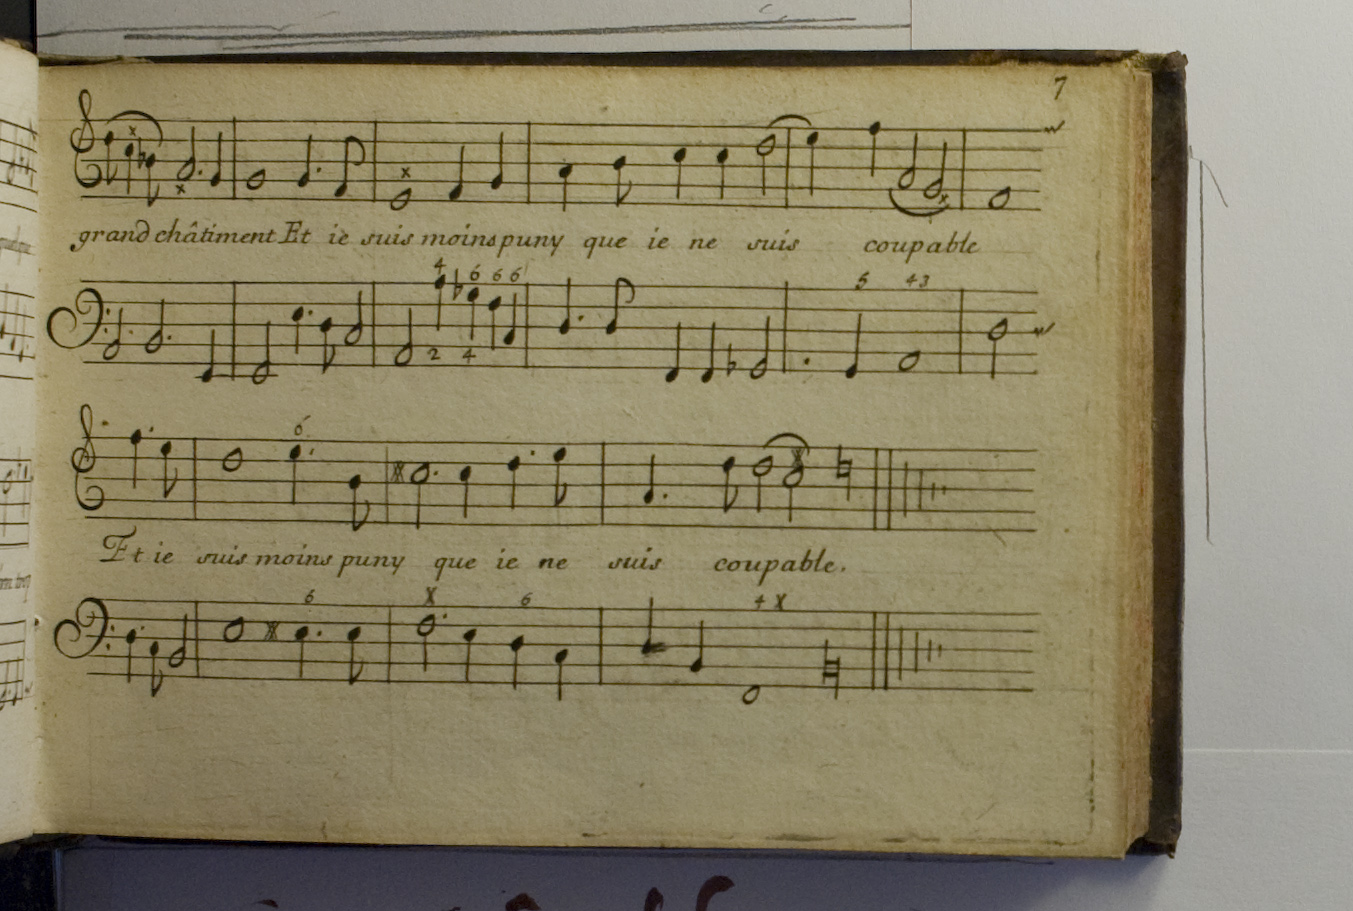 7
grand châtiment Et ie suis moins puny que ie ne suis coupable
4 6 6 6 5 4 3
2 4
6
Et ie suis moins puny que ie ne suis coupable.
6 X 6 4 X